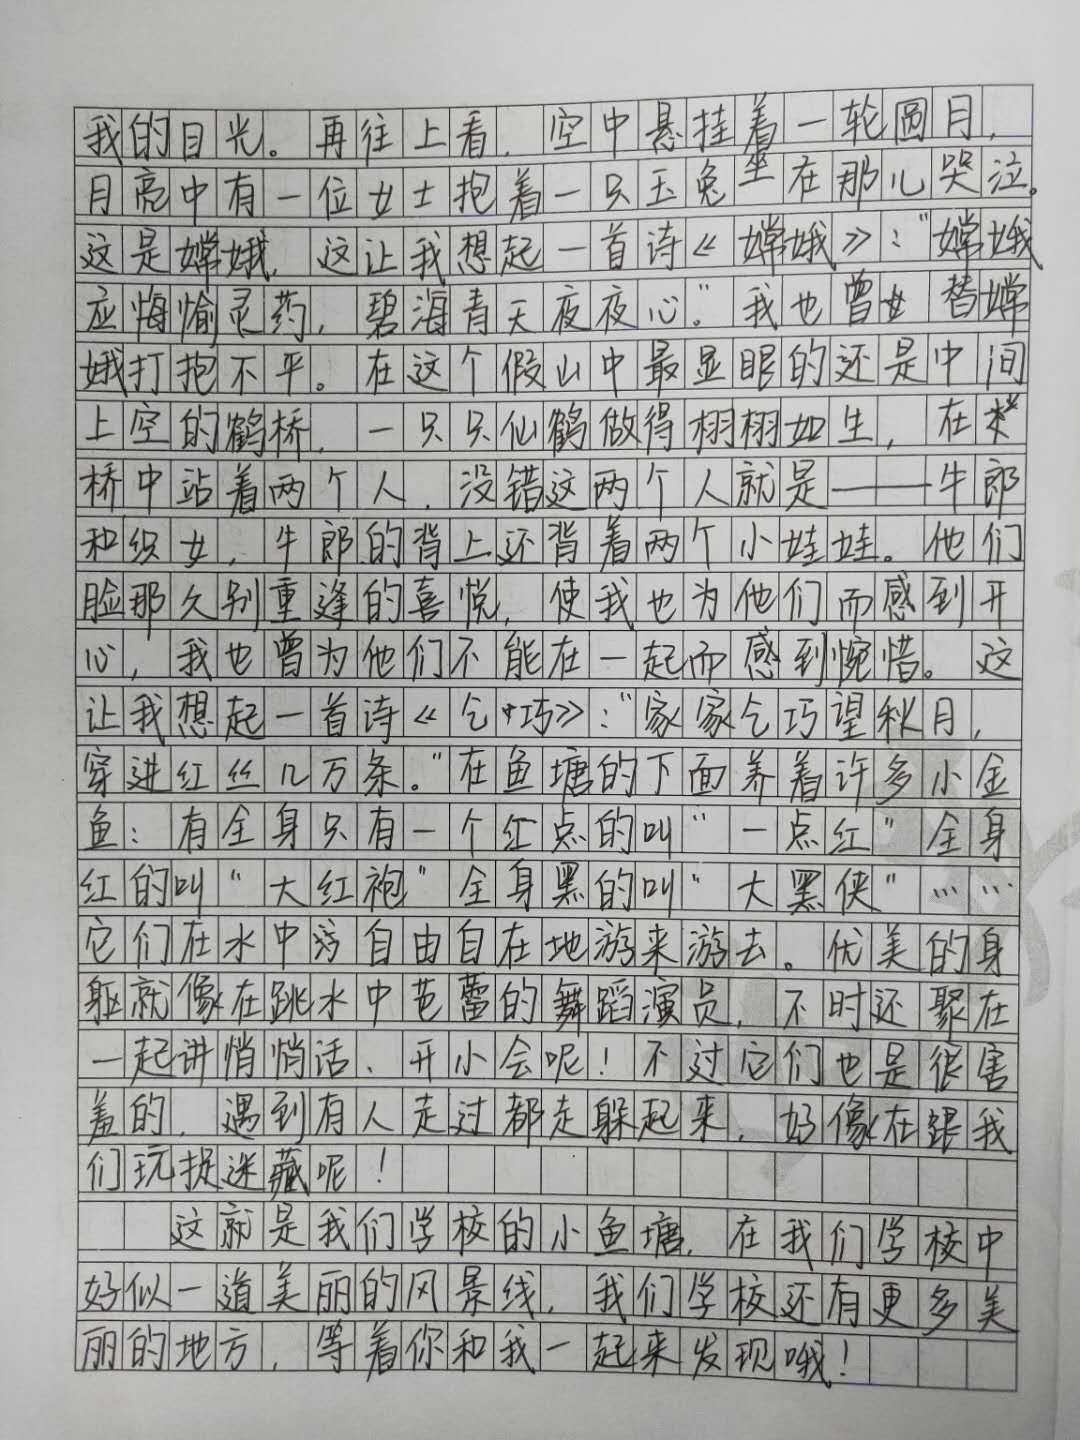 我的目光。再往上看，空中悬挂着一轮圆月，
月亮中有一位女士抱着一只玉兔坐在那儿哭泣。
这是嫦娥，这让我想起一首诗《嫦娥》：“嫦娥
应悔愉灵药，碧海青天夜夜心。”我也曾女替嫦
娥打抱不平。在这个假山中最显眼的还是中间
上空的鹤桥，一只只仙鹤做得栩栩如生，在
桥中站着两个人，没错这两个人就是——牛郎
和织女，牛郎的背上还背着两个小娃娃。他们
脸那久别重逢的喜悦，使我也为他们而感到开
心，我也曾为他们不能在一起而感到惋惜。这
让我想起一首诗《乞巧》：“家家乞巧望秋月，
穿进红丝几万条。”在鱼塘的下面养着许多小金
鱼：有全身只有一个红点的叫“一点红”全身
红的叫“大红袍”全身黑的叫“大黑侠”……
它们在水中自由自在地游来游去。优美的身
躯就像在跳水中芭蕾的舞蹈演员，不时还聚在
一起讲悄悄话、开小会呢！不过它们也是很害
羞的，遇到有人走过都走躲起来，好像在跟我
们玩捉迷藏呢！
这就是我们学校的小鱼塘，在我们学校中
好似一道美丽的风景线，我们学校还有更多美
丽的地方，等着你和我一起来发现哦！